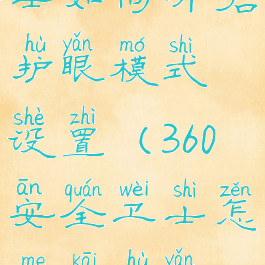 士如何开启
hù yǎn mó shì
护眼模式
shè zhì
设置（360
ān quán wèi shì zěn
安全卫士怎
me kāi hù yǎn